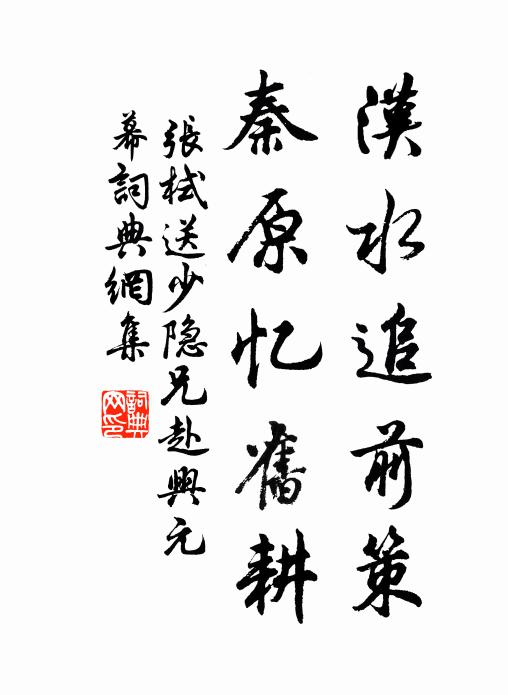 漢水追前策
秦原忆舊耕
張栻送少隐兄赴興元
幕詞典網集
詞典网印